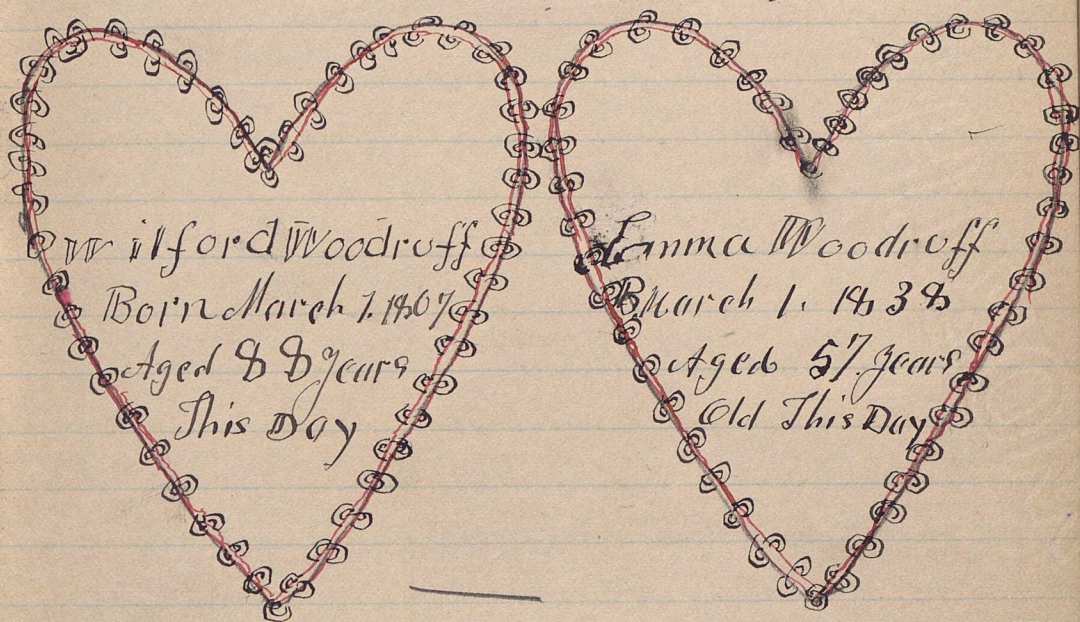 Wilford Woodruff
Born March 1. 1807
Aged 88 Years
This Day
Emma Woodruff
B. March 1. 1838
Aged 57. Years
Old This Day